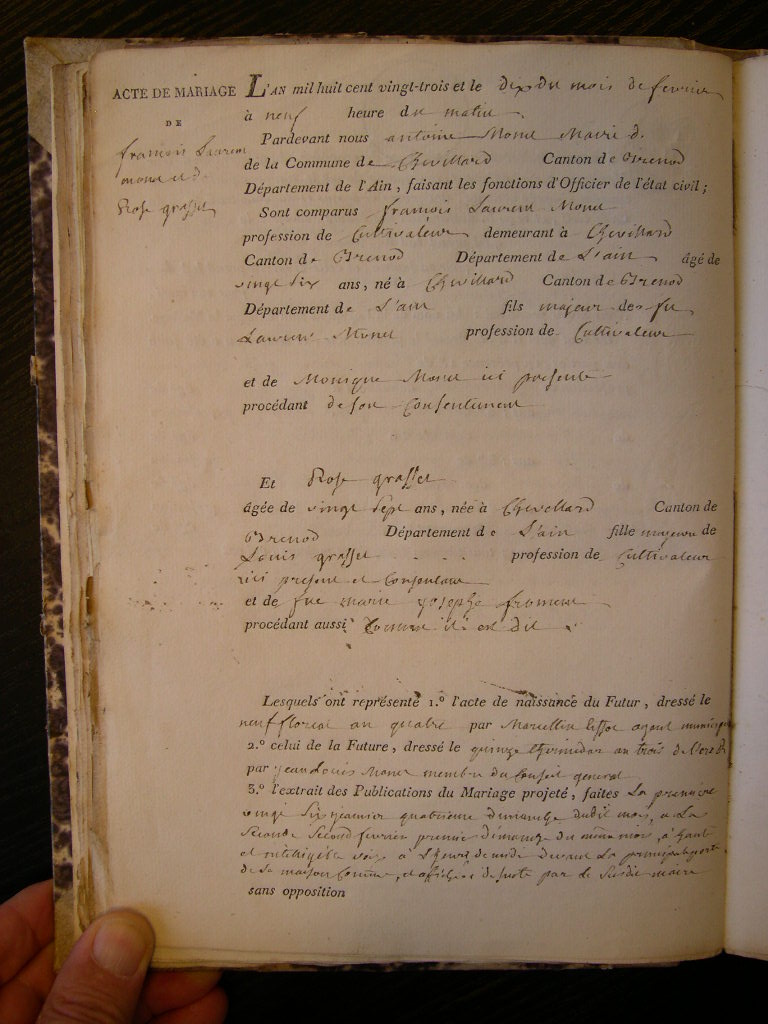 ACTE DE MARIAGE
DE
françois Laurent
monet et d.
Rose grasset
L'AN mil huit cent vingt-trois et le dix du mois de fevrier
à neuf heure du matin
Pardevant nous antoine Monet Maire d.
de la Commune de Chevillard Canton de Brenod
Département de l'Ain, faisant les fonctions d'Officier de l'état civil;
Sont comparus françois Laurent Monet
profession de Cultivateur demeurant à Chevillard
Canton de Brenod Département de L'ain âgé de
vingt six ans, né à Chevillard Canton de Brenod
Département de L'ain fils majeur de feu
Laurent Monet profession de Cultivateur
et de Monique Monet ici presente
procédant de son Consentement
Et Rose grasset
âgée de vingt sept ans, née à Chevillard Canton de
Brenod Département de L'ain fille majeure de
Louis grasset profession de Cultivateur
ici present et Consentant
et de feue marie josephe froment
procédant aussi Comme il est dit
Lesquels ont représenté 1.º l'acte de naissance du Futur, dressé le
neuf floreal an quatre par Marcellin agent municip
2.º celui de la Future, dressé le quinze thermidor an trois de l'ere
par jean Louis Monet membre du Conseil general
3.º l'extrait des Publications du Mariage projeté, faites La premiere
vingt six janvier quatrieme dimanche dudit mois, et La
seconde second fevrier premier dimanche du même mois, à haute
et intelligible voix à L'heure de midi devant La principale porte
de La maison Commune, et affichées de suite par le Susdit maire
sans opposition